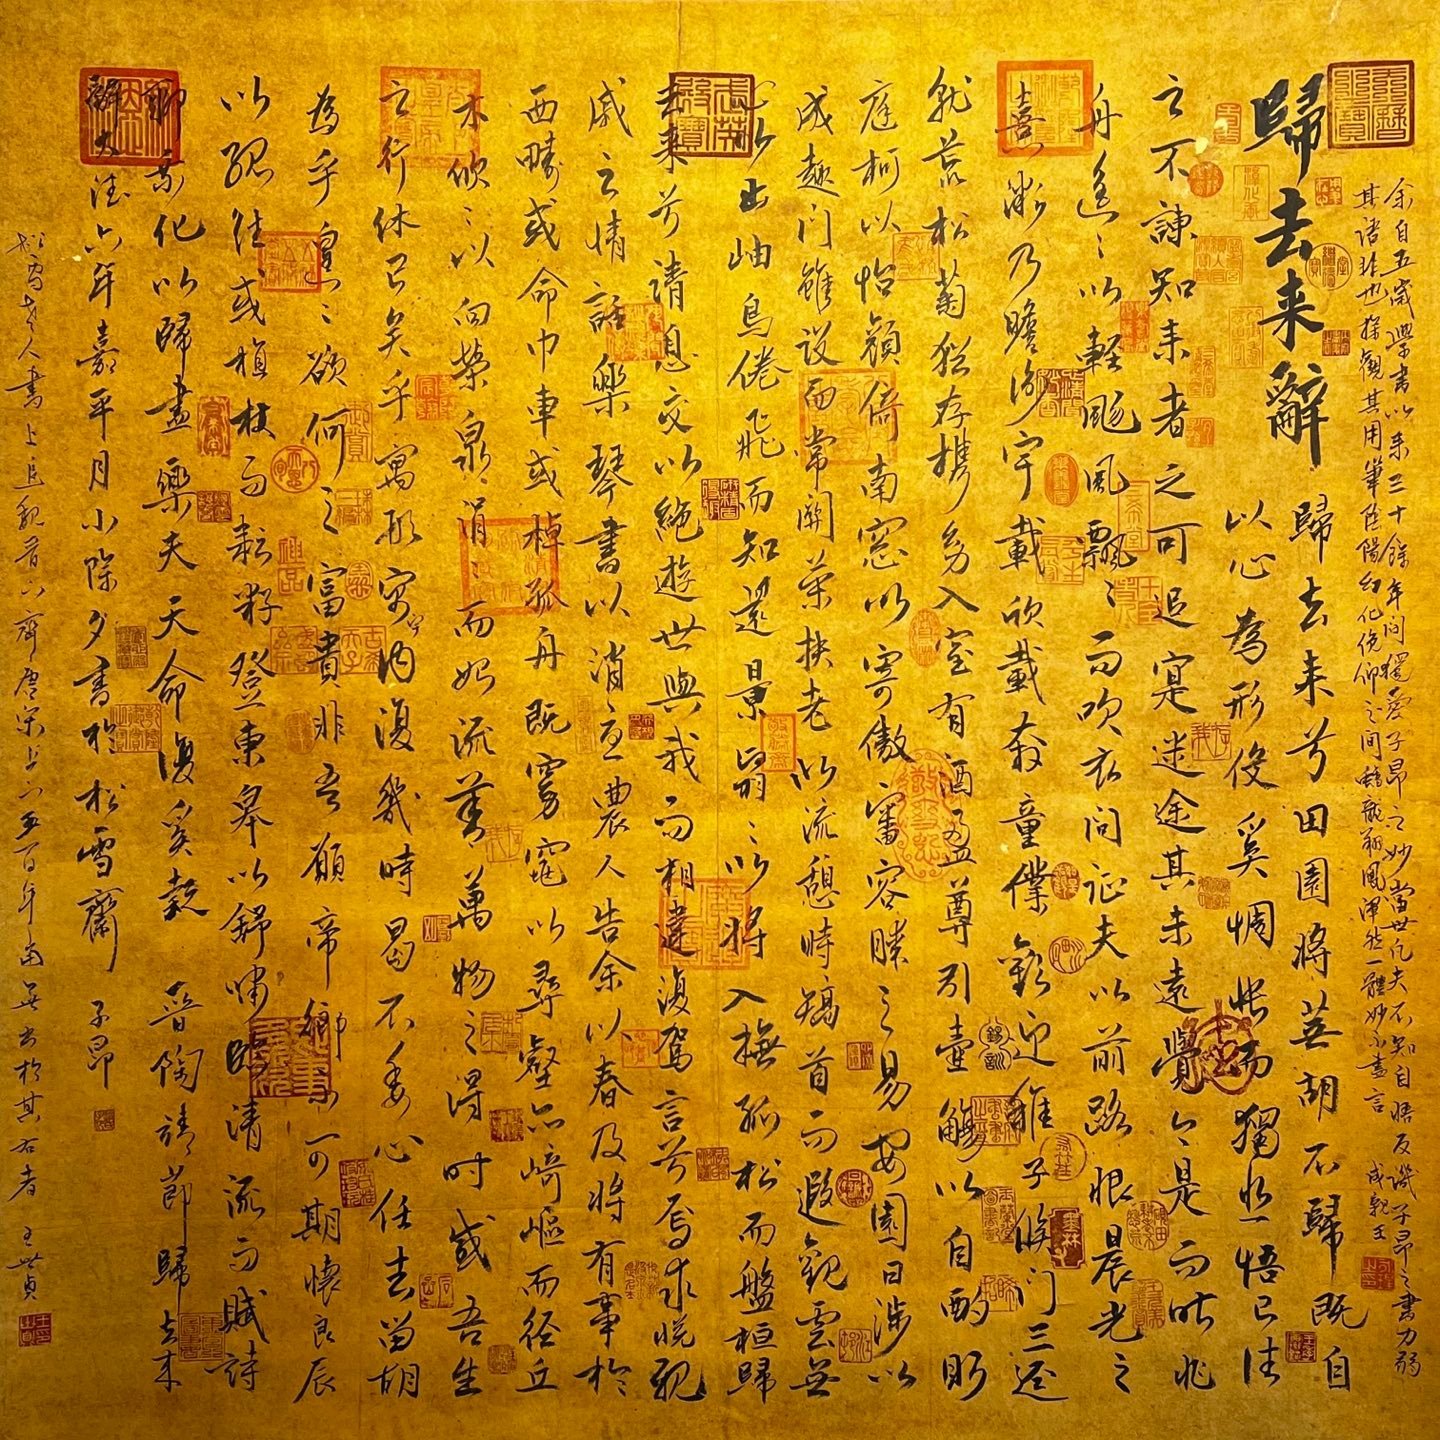 余自五歲學書以来三十餘年间獨愛子昂之妙當世凡夫不知自悟反譏子昂之書力弱
其諸非也探觀其用筆陰陽幻化俛仰之间蟠龍翔鳳渾然一體妙不盡言 成親王
歸去来辭
歸去来兮田園将蕪胡不歸既自
以心為形役奚惆悵而獨悲悟已往
之不諫知来者之可追寔迷途其未遠覺今是而昨非
舟遥〻以輕颺風飄〻而吹衣问征夫以前路恨晨光之
熹微乃瞻衡宇載欣載奔童僕歡迎稚子候门三径
就荒松菊猶存携幼入室有酒盈尊引壺觴以自酌眄
庭柯以怡顔倚南窓以寄傲審容膝之易安園日涉以
成趣门雖設而常關策扶老以流憩時矯首而遐觀雲無
心以出岫鳥倦飛而知還景翳〻以将入撫孤松而盤桓歸
去来兮請息交以絶遊世與我而相違復駕言兮焉求悦親
戚之情話樂琴書以消憂農人告余以春及将有事於
西疇或命巾車或棹孤舟既窈窕以尋壑亦崎嶇而径丘
木欣〻以向榮泉涓〻而始流善萬物之得时感吾生
之行休已矣乎寓形宇内復幾時曷不委心任去留胡
為乎遑〻欲何之富貴非吾願帝鄉不可期懷良辰
以孤往或植杖而耘耔登東皋以舒嘯臨清流而賦詩
聊乘化以歸盡樂夫天命復奚疑 晉陶靖節歸去来
辭大德六年嘉平月小除夕書於松雪齋 子昂
松雪老人書上追魏晉六齊唐宋上下五百年無出於其右者 王世貞